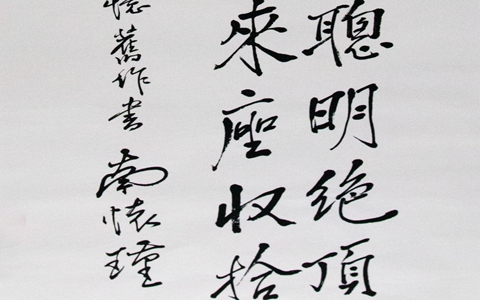 聰明絕頂
來座收拾
憶舊作書 南懷瑾